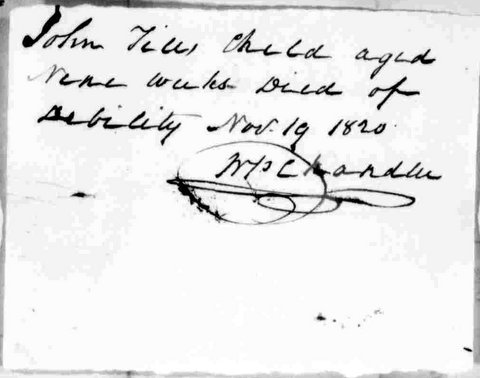 John Tills Child aged
Nine weeks Died of
Debility Nov. 19 1820
WP Chandler